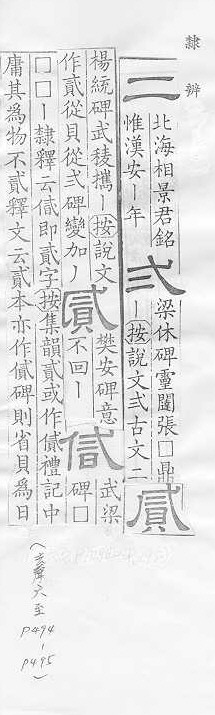 隸辨
二 北海相景君銘
惟漢安丨年
弍 梁休碑靈闥張□鼎
丨按說文弍古文二
貳 楊統碑武稜攜丨按說文
作貳從貝從弍碑變加丿
貳 樊安碑意
不回丨
武梁
碑□
□□丨隸釋云即貳字按集韻貳或作禮記中
庸其為物不貳釋文云貳本亦作碑則省貝為日
(去聲六至
P494-
P495)